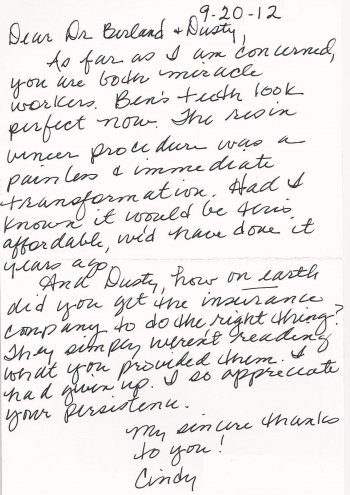 9-20-12
Dear Dr Borland & Dusty,
As far as I am concerned,
you are both miracle
workers. Ben's teeth look
perfect now. The resin
veneer procedure was a
painless & immediate
transformation. Had I
known it would be this
affordable, we'd have done it
years ago.
And Dusty, how on earth
did you get the insurance
company to do the right thing?
They simply weren't reading
what you provided them. I
had given up. I so appreciate
your persistence.
My sincere thanks
to you!
Cindy